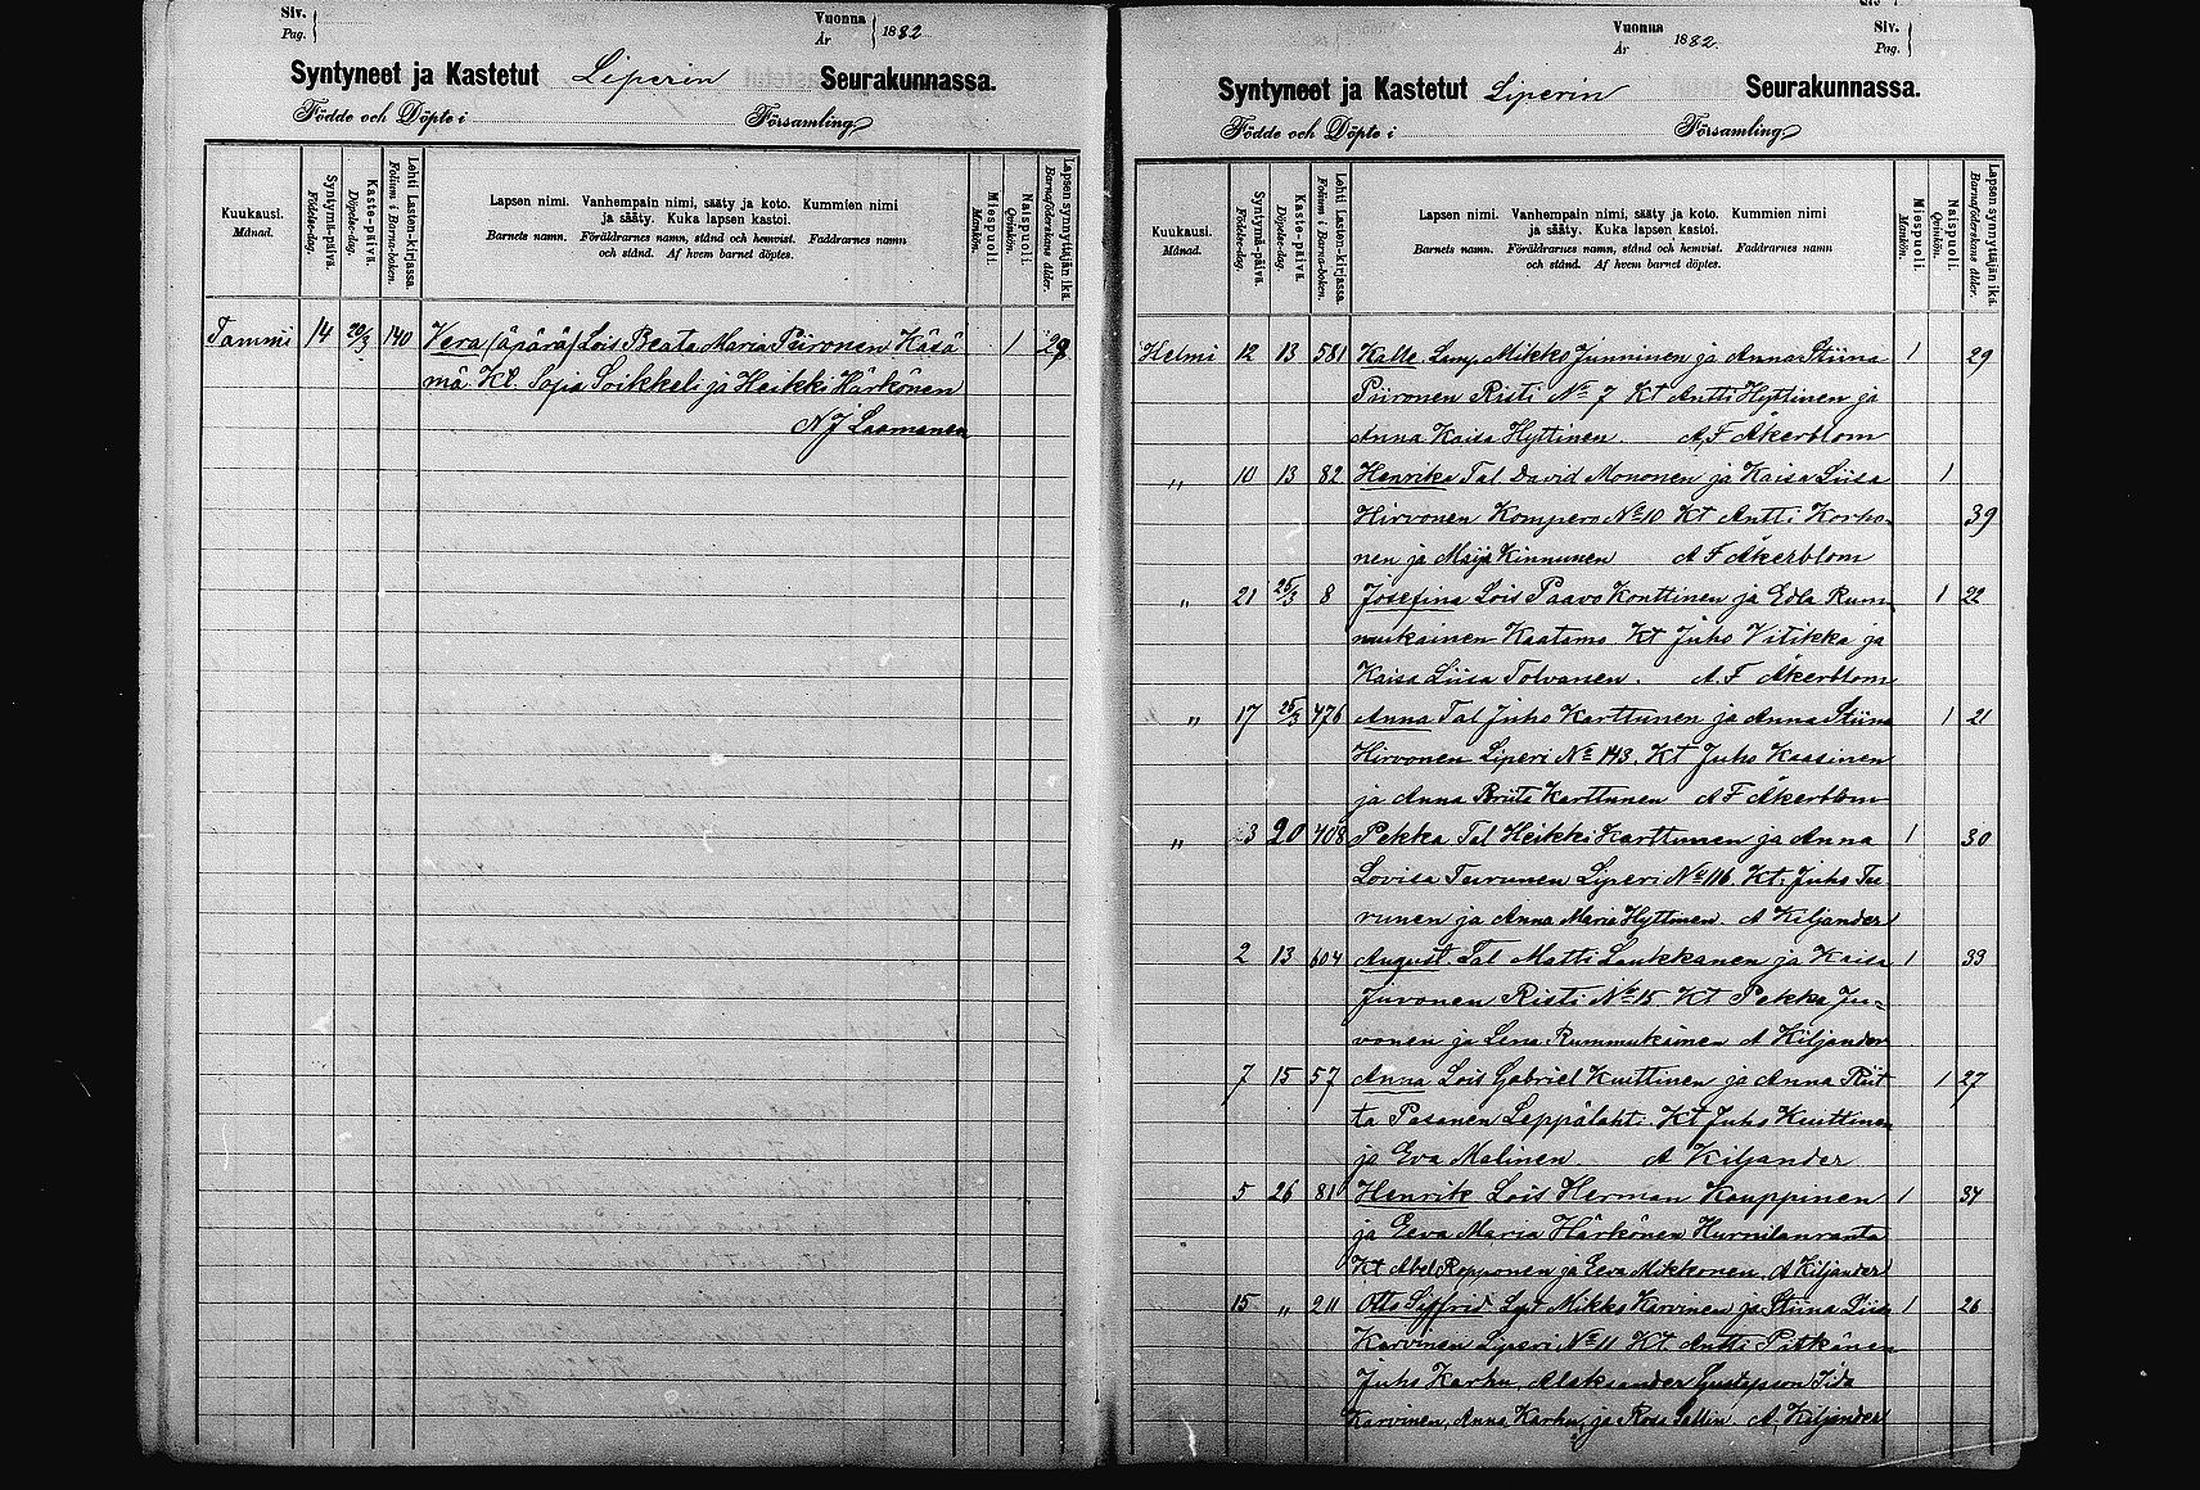 Siv.
Pag.
Vuonna
År
1882
Syntyneet ja Kastetut Liperin Seurakunnassa.
Födde och Döpte i Församling
Kuukausi.
Månad.
Syntymä-päivä.
Födelse-dag.
Kaste-päivä.
Döpelse-dag.
Lehti Lasten-kirjassa.
Folium i Barna-boken.
Lapsen nimi. Vanhempain nimi, sääty ja koto. Kummien nimi
ja sääty. Kuka lapsen kastoi.
Barnets namn. Föräldrarnes namn, stånd och hemvist. Faddrarnes namn
och stånd. Af hvem barnet döptes.
Miespuoli.
Mankön.
Naispuoli.
Qvinkön.
Lapsen synnyttäjän ikä.
Barnaföderskans ålder.
Tammi 14 20/3 140 Vera (äpärä) Lois Beata Maria Piironen Käsä 1 29
mä. Kt. Sofia Soikkeli ja Heikki Härkönen
N J Laamanen
Vuonna
År
1882.
Siv.
Pag.
Syntyneet ja Kastetut Liperin Seurakunnassa.
Födde och Döpte i Församling
Kuukausi.
Månad.
Syntymä-päivä.
Födelse-dag.
Kaste-päivä.
Döpelse-dag.
Lehti Lasten-kirjassa.
Folium i Barna-boken.
Lapsen nimi. Vanhempain nimi, sääty ja koto. Kummien nimi
ja sääty. Kuka lapsen kastoi.
Barnets namn. Föräldrarnes namn, stånd och hemvist. Faddrarnes namn
och stånd. Af hvem barnet döptes.
Miespuoli.
Mankön.
Naispuoli.
Qvinkön.
Lapsen synnyttäjän ikä.
Barnaföderskans ålder.
Helmi 12 13 581 Kalle. Lamp. Mikko Junninen ja Anna Stiina 1 29
Piironen Risti No 7 Kt Antti Hyttinen ja
Anna Kaisa Hyttinen. A, F Åkerblom
" 10 13 82 Henrika Tal. David Mononen ja Kaisa Liisa 1
Hirvonen Kompero No 10 Kt Antti Korho- 39
nen ja Maija Kinnunen A F Åkerblom
" 21 25/3 8 Josefina Lois Paavo Konttinen ja Edla Rum 1 22
mukainen Kaatamo. Kt Juho Vitikka ja
Kaisa Liisa Tolvanen. A. F Åkerblom
" 17 25/3 476 Anna Tal Juho Karttunen ja Anna Stiina 1 21
Hirvonen Liperi No 143. Kt Juho Kaasinen
ja Anna Briita Karttunen A F Åkerblom
" 3 20 408 Pekka Tal Heikki Karttunen ja Anna 1 30
Lovisa Turunen Liperi No 116. Kt. Juho Tu
runen ja Anna Maria Hyttinen. A Kiljander
2 13 604 August. Tal Matti Laukkanen ja Kaisa 1 33
Juvonen Risti No 15 Kt Pekka Ju=
vonen ja Lena Rummukainen A Kiljander
7 15 57 Anna Lois Gabriel Kuittinen ja Anna Riit 1 27
ta Pasanen Leppälahti. Kt Juho Kuittinen
ja Eva Malinen. A Kiljander
5 26 81 Henrik Lois Herman Kauppinen 1 34
ja Eeva Maria Härkönen Hurnilanranta
Kt Abel Ropponen ja Eeva Mikkonen. A Kiljander
15 " 211 Otto Siffrid Mikko Karvinen ja Stiina Liisa 1 26
Karvinen Liperi No 11 Kt. Antti Pitkänen
Juho Karhu, Aleksander Gustafson Iida
Karvinen, Anna Karhu, ja Rosa Sallin A, Kiljander